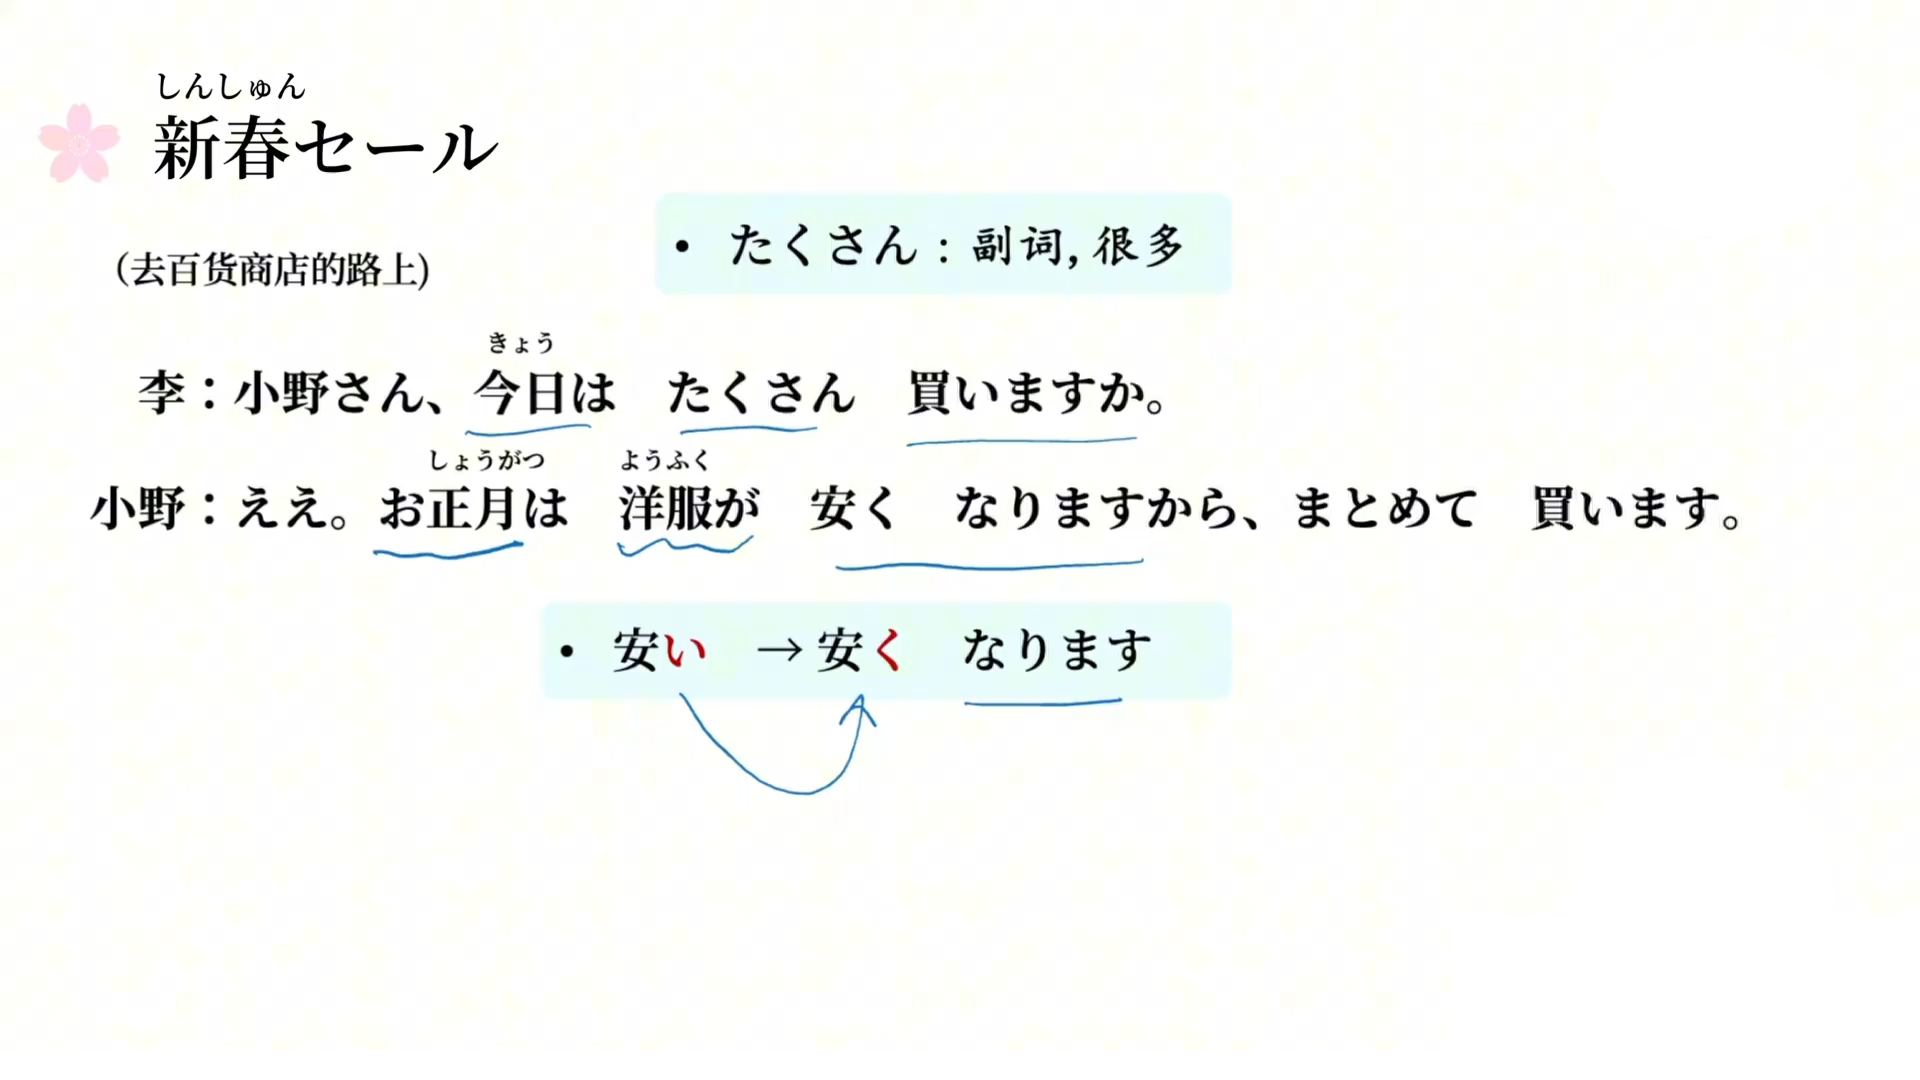 しんしゅん
新春セール
• たくさん：副词,很多
(去百货商店的路上)
きょう
李：小野さん、今日は　たくさん　買いますか。
しょうがつ　ようふく
小野：ええ。お正月は　洋服が　安く　なりますから、まとめて　買います。
• 安い　→安く　なります